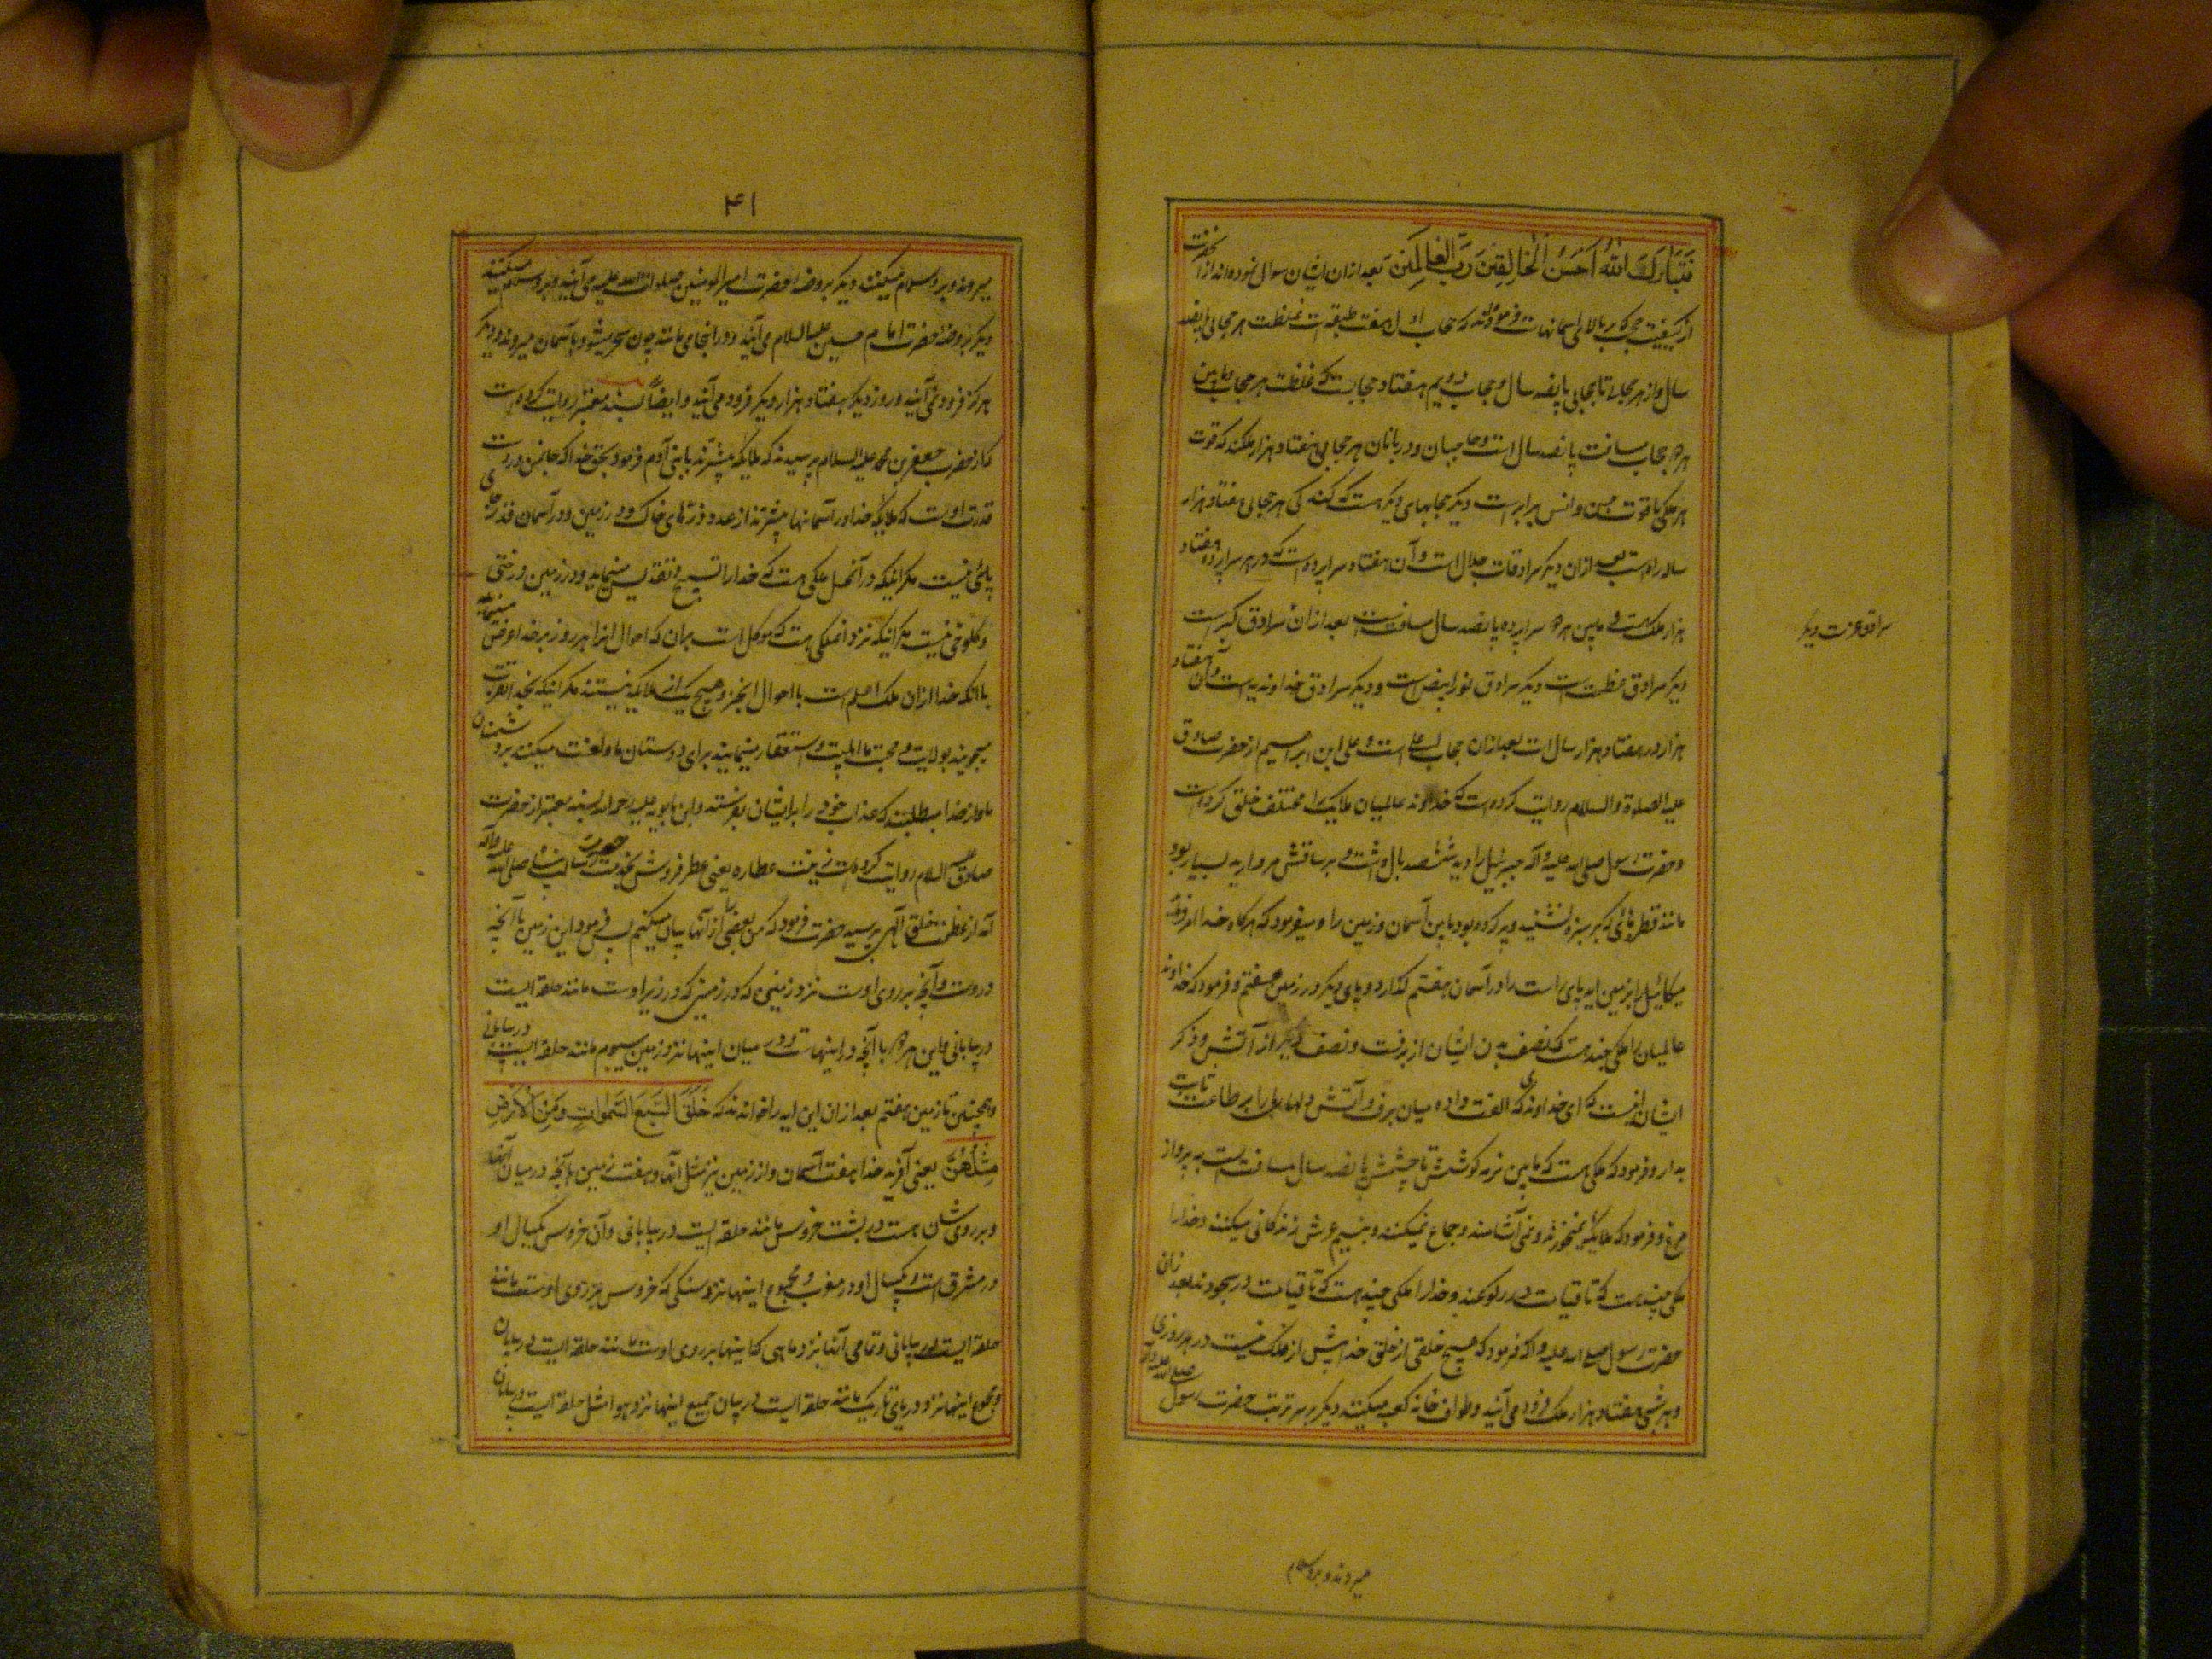 فَتَبَارَكَ اللهُ اَحسَنُ الخَالِقِينَ رَبِّ العَالَمِينَ بعد ازان ایشان سوال نموده اند از آنحضرت
از کیفیت حجب که بر بالای آسمانهاست فرموده اند که حجاب اول هفت طبقه است غلظت هر حجابی پانصد
سال و از هر حجابی تا حجابی پانصد سال و حجاب دویم هفتاد حجابست که غلظت هر حجاب و مابین
هر دو حجاب مسافت پانصد سال است و حاجبان و دربانان هر حجابی هفتاد هزار ملکند که قوت
هر ملکی با قوت جن و انس برابر است دیگر حجابهای دیگر هست که کندگی هر حجابی هفتاد هزار
ساله راه است بعد ازان دیگر سرادقات جلال است و آن هفتاد سراپرده است که در هر سراپرده هفتاد
هزار ملک هست و مابین هر دو سراپرده پانصد سال مسافتست بعد ازان سرادق کبر است
سرادق عزت دیگر
دیگر سرادق عظمت است دیگر سرادق نور ابیض است و دیگر سرادق خداوندیه است و آن هفتاد
هزار در هفتاد هزار سال است بعد ازان حجاب اعلی است و علی ابن ابراهیم از حضرت صادق
علیه الصلاة والسلام روایت کرده است که خداوند عالمیان ملایکه را مختلف خلق کرده است
و حضرت رسول صلی الله علیه و آله جبرئیل را دید ششصد بال داشت و بر ساقش مروارید بسیار بود
مانند قطرهای که بر سبزه نشیند و پر کرده بود مابین آسمان و زمین را و میفرمود که هرگاه خدا امر فرماید
میکائیل را بزمین آید پای راست را در آسمان هفتم گذارد و پای دیگر در زمین هفتم و فرمود که خداوند
عالمیان را ملکی چند هست که نصف بدن ایشان از برفست و نصف دیگر از آتش و ذکر
ایشان اینست که ای خداوندی که الفت داده میان برف و آتش دلهای ما را بر طاعت ثابت
بدار و فرمود که ملکی هست که مابین نرمه گوشش تا چشمش پانصد سال مسافتست به پرواز
مرغ و فرمود که ملایکه نمیخورند و نمی آشامند و جماع نمیکنند و بنسیم عرش زندگانی میکنند و خدا را
ملکی چند هست که تا قیامت در رکوعند و خدا را ملکی چند هست که تا قیامت در سجودند بعد ازان
حضرت رسول صلی الله علیه و آله فرمود که هیچ خلقی از خلق خدا بیش از ملک نیست در هر روزی
و هر شبی هفتاد هزار ملک فرود می آیند و طواف خانه کعبه میکنند دیگر بر سر تربت حضرت رسول صلی الله علیه و آله
میروند و بر او سلام
۴۱
میروند و بر او سلام میکنند دیگر بروضه حضرت امیر المومنین صلوات الله علیه می آیند و بر او سلام میکنند
دیگر بروضه حضرت امام حسین علیه السلام می آیند و در اینجا می مانند چون سحر میشود بآسمان میروند و دیگر
هرگز فرود نمی آیند و روز دیگر هفتاد هزار دیگر فرود می آیند و ایضاً بسند معتبر روایت کرده است
که از حضرت جعفر بن محمد علیه السلام پرسیدند که ملایکه بیشترند یا بنی آدم فرمود بحق خدا که جانمن در دست
قدرت اوست که ملایکه خدا در آسمانها بیشترند از عدد ذرهای خاک در زمین و در آسمان قدر جای
پائی نیست مگر اینکه در آنمحل ملکی هست که خدا را تسبیح و تقدیس مینماید و در زمین درختی
و کلوخی نیست مگر اینکه نزد او ملکی هست که موکل است بران که احوال انرا هر روز بر خدا عرض مینماید
با آنکه خدا ازان ملک اعلم است باحوال آنچیز و هیچ یک از ملایکه نیستند مگر اینکه بخدا تقرب
میجویند بولایت و محبت ما اهلبیت و استغفار مینمایند برای دوستان ما و لعنت میکنند بر دشمنان
ما و از خدا میطلبند که عذاب خود را بر ایشان بفرستد و ابن بابویه علیه رحمه الله بسند معتبر از حضرت
صادق علیه السلام روایت کرده است زینت عطاره یعنی عطر فروش بخدمت حضرت رسالت پناه صلی الله علیه و آله
آمد از عظمت خلق الهی پرسید حضرت فرمود که من بعضی از آنها بیان میکنم پس فرمود این زمین با آنچه
در اوست و آنچه بر روی اوست نزد زمینی که در زمینی که در زیر اوست مانند حلقه ایست
در بیابانی و این هر دو با آنچه در اینهاست و در میان اینها نزد زمین سیوم مانند حلقه ایست در بیابانی
و همچنین تا زمین هفتم بعد ازان این آیه را خواندند که خَلَقَ السَّبعَ السَّمٰواتِ وَ مِنَ الاَرضِ
مِثلَهُنَّ یعنی آفرید خدا هفت آسمان و از زمین نیز مثل آنها و هفت زمین با آنچه در میان آنها
و بر روی شان هست در پشت خروس مانند حلقه ایست در بیابانی و آن خروس یکبال او
در مشرق است و یکبال او در مغرب و مجموع اینها نزد سنگی که خروس بر روی اوست مانند
حلقه ایست در بیابانی و تمامی آنها نزد ماهی که اینها بر روی اوست مانند حلقه ایست در بیابان
و مجموع اینها نزد دریای تاریک مانند حلقه ایست در بیابان جمیع اینها نزد هوا مثل حلقه ایست در بیابان